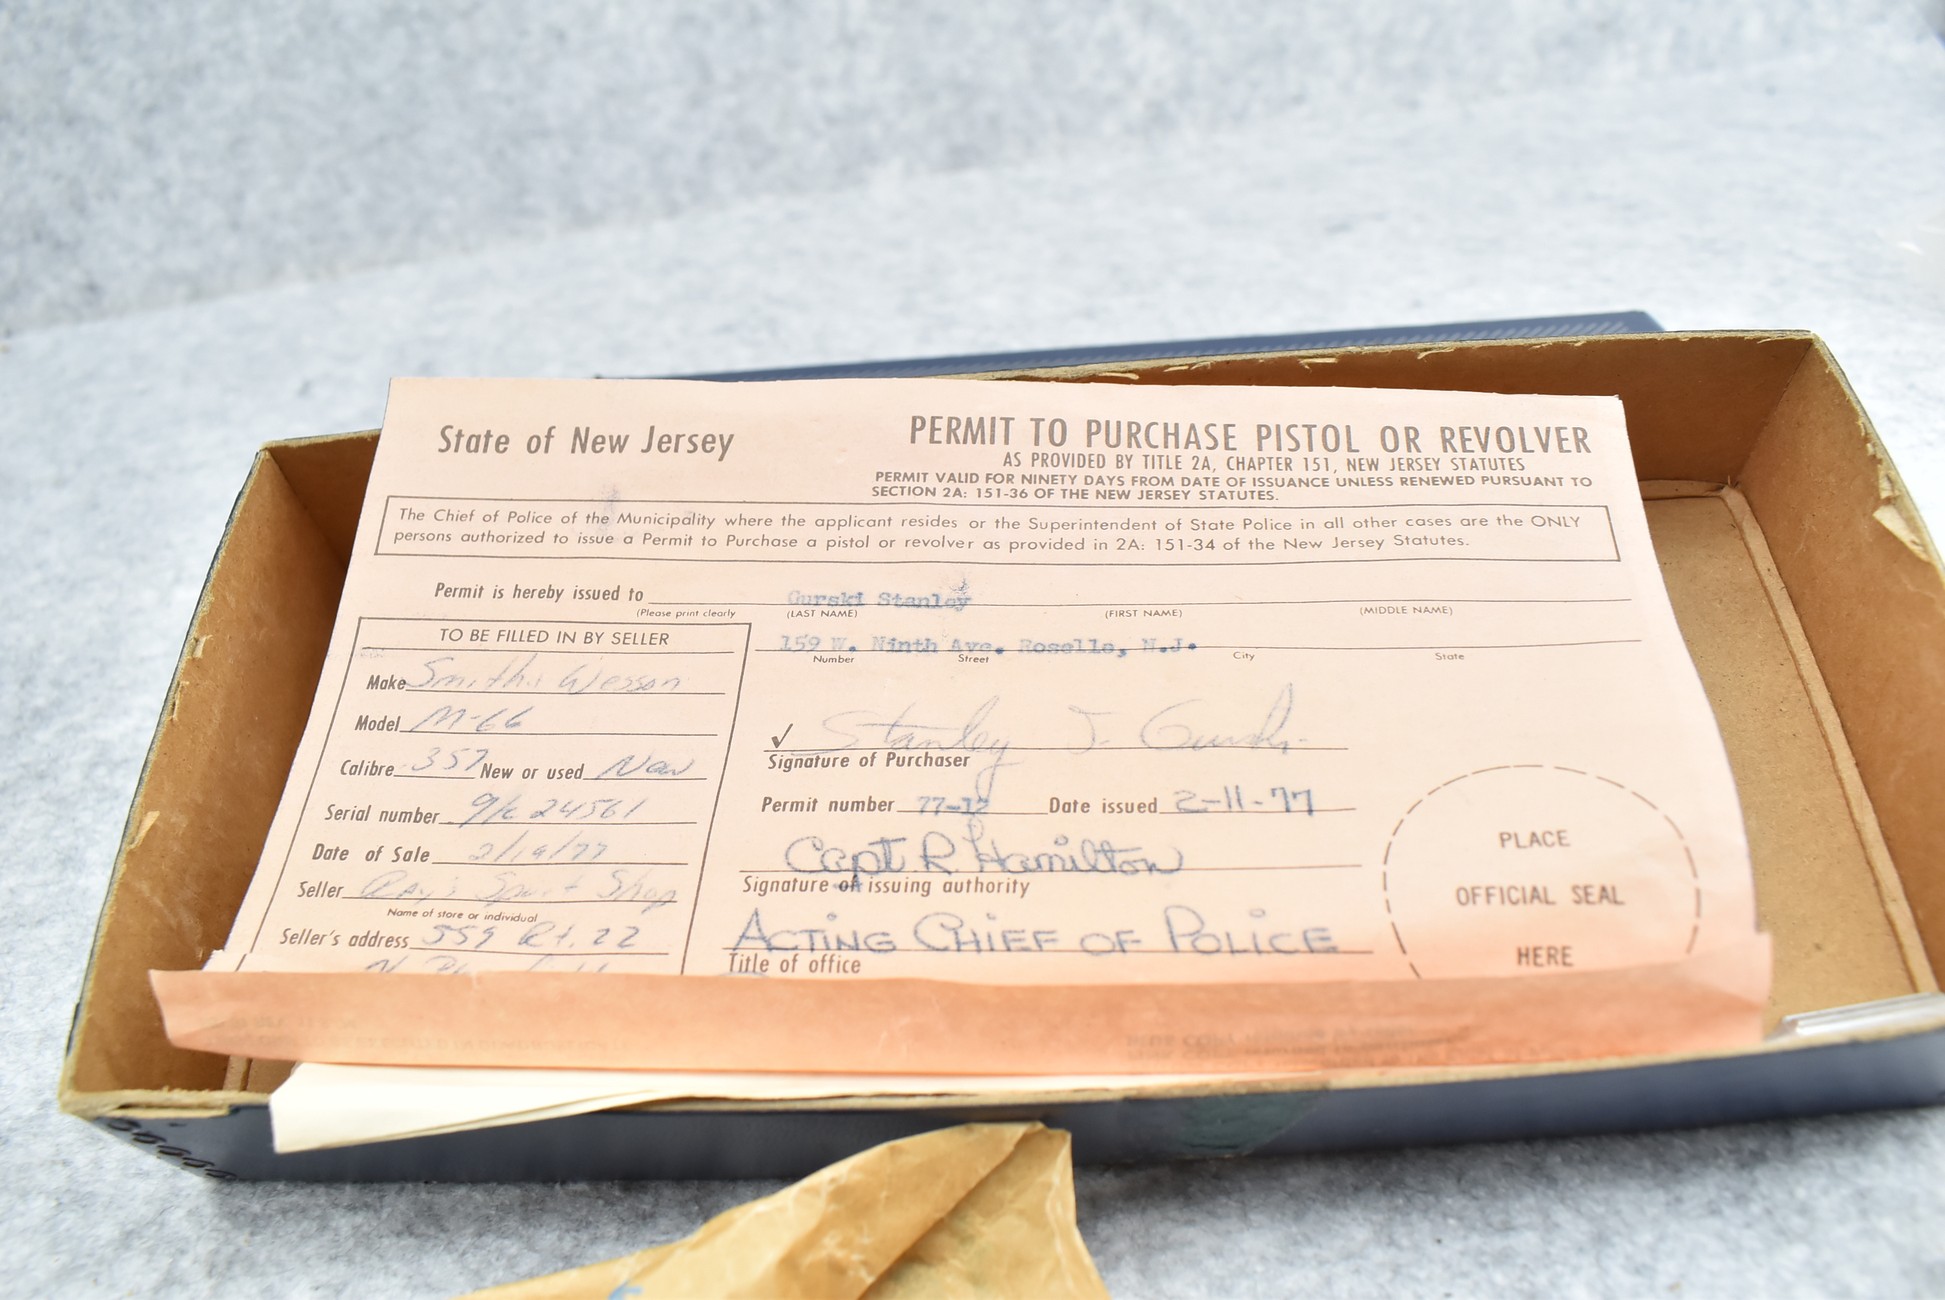 State of New Jersey
PERMIT TO PURCHASE PISTOL OR REVOLVER
AS PROVIDED BY TITLE 2A, CHAPTER 151, NEW JERSEY STATUTES
PERMIT VALID FOR NINETY DAYS FROM DATE OF ISSUANCE UNLESS RENEWED PURSUANT TO
SECTION 2A: 151-36 OF THE NEW JERSEY STATUTES.
The Chief of Police of the Municipality where the applicant resides or the Superintendent of State Police in all other cases are the ONLY
persons authorized to issue a Permit to Purchase a pistol or revolver as provided in 2A: 151-34 of the New Jersey Statutes.
Permit is hereby issued to Gurski Stanley
(Please print clearly (LAST NAME) (FIRST NAME) (MIDDLE NAME)
159 W. Ninth Ave. Roselle, N.J.
Number Street City State
TO BE FILLED IN BY SELLER
Make Smith & Wesson
Model M-66
Calibre .357 New or used New
Serial number 24561
Date of Sale
Seller Ray's Sport Shop
Name of store or individual
Seller's address 559 Rt. 22
✓ Stanley J. Gurski
Signature of Purchaser
Permit number 77-12 Date issued 2-11-77
Capt R Hamilton
Signature of issuing authority
ACTING CHIEF OF POLICE
Title of office
PLACE
OFFICIAL SEAL
HERE